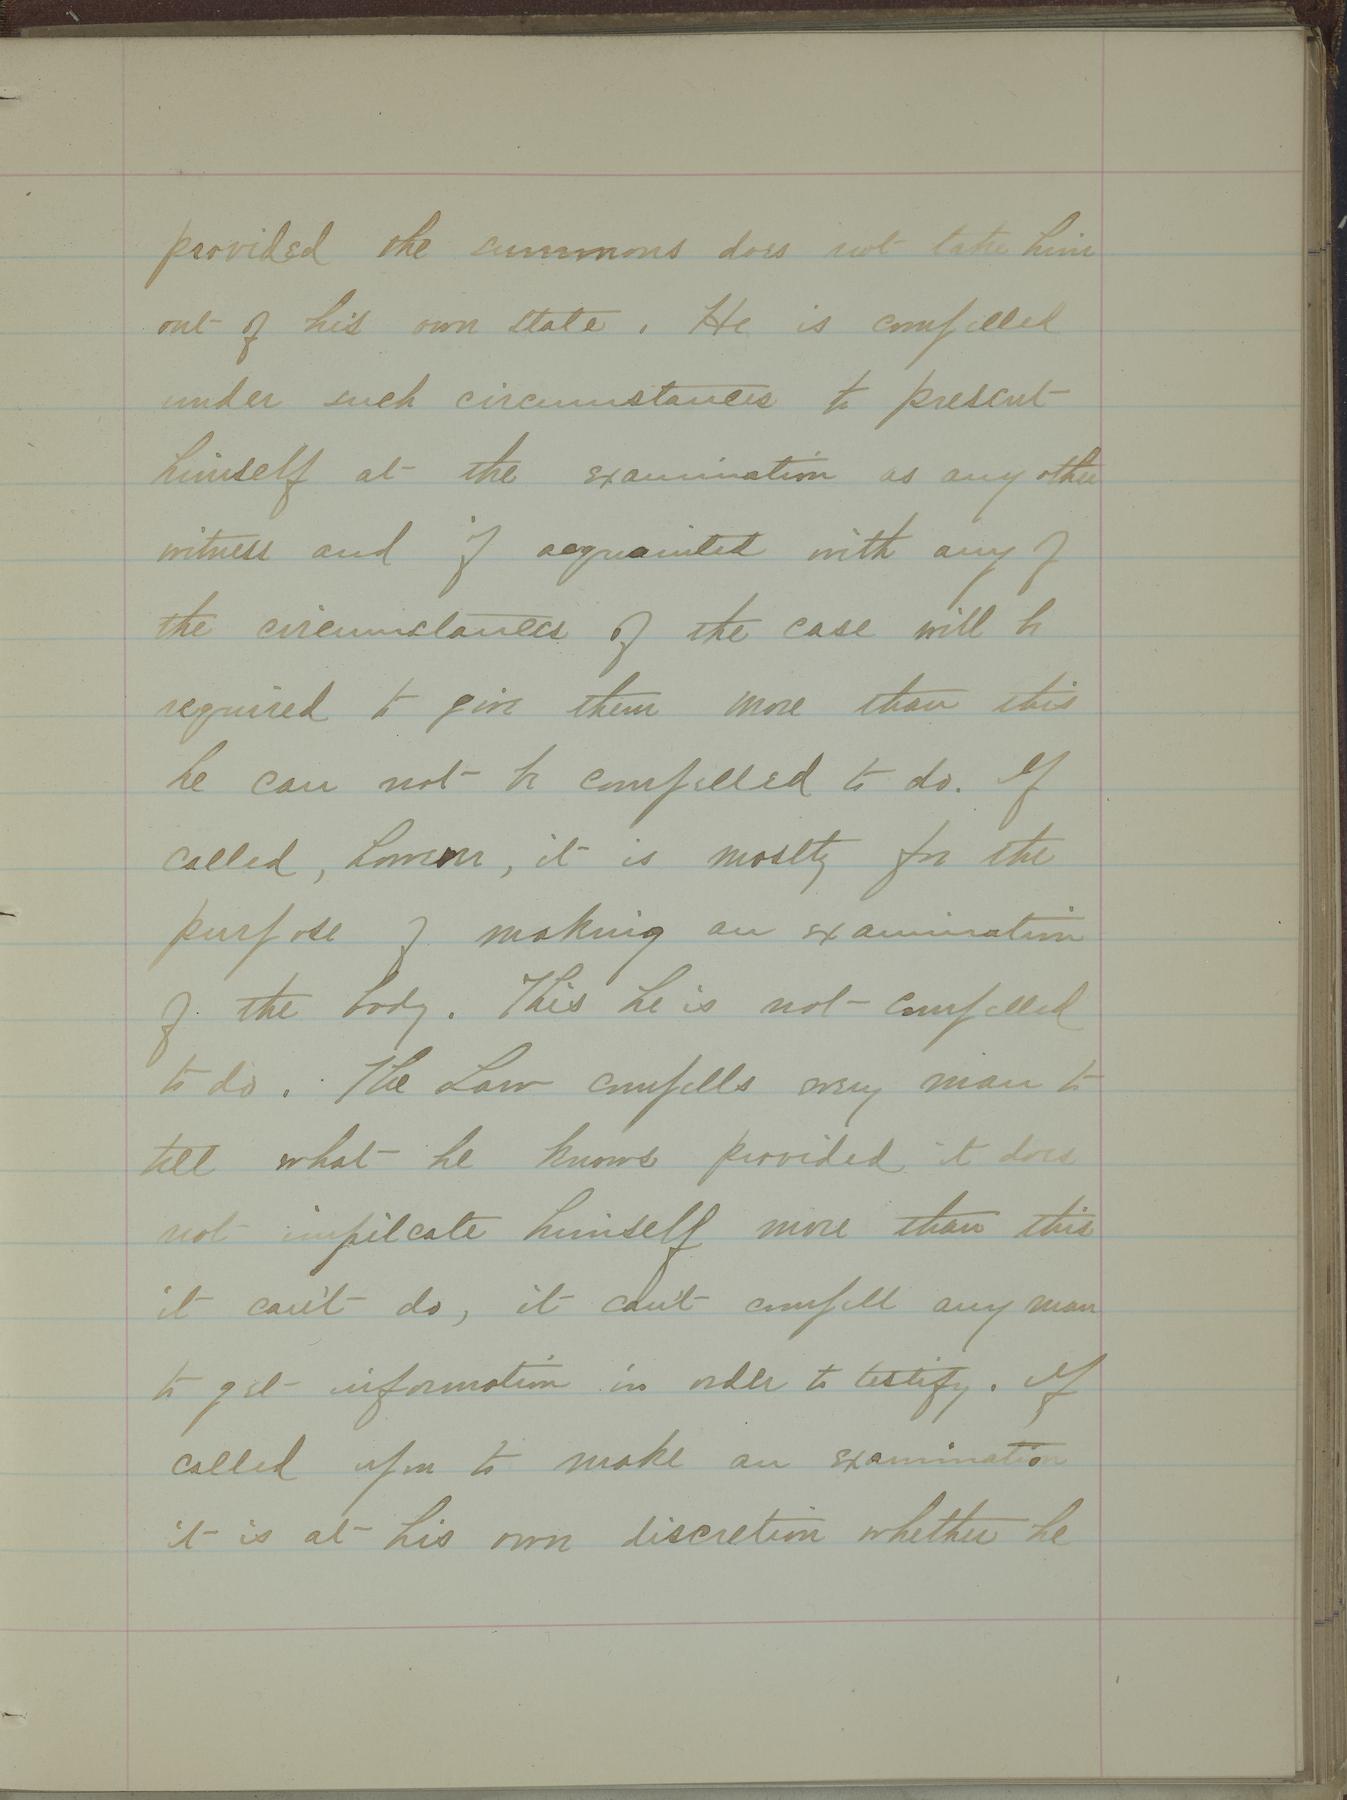 provided the summons does not take him
out of his own state. He is compelled
under such circumstances to present
himself at the examination as any other
witness and if acquainted with any of
the circumstances of the case will be
required to give them more than this
he can not be compelled to do. If
called, however, it is mostly for the
purpose of making an examination
of the body. This he is not compelled
to do. The Law compells every man to
tell what he knows provided it does
not impilcate himself more than this
it can't do, it can't compell any man
to get information in order to testify. If
called upon to make an examination
it is at his own discretion whether he